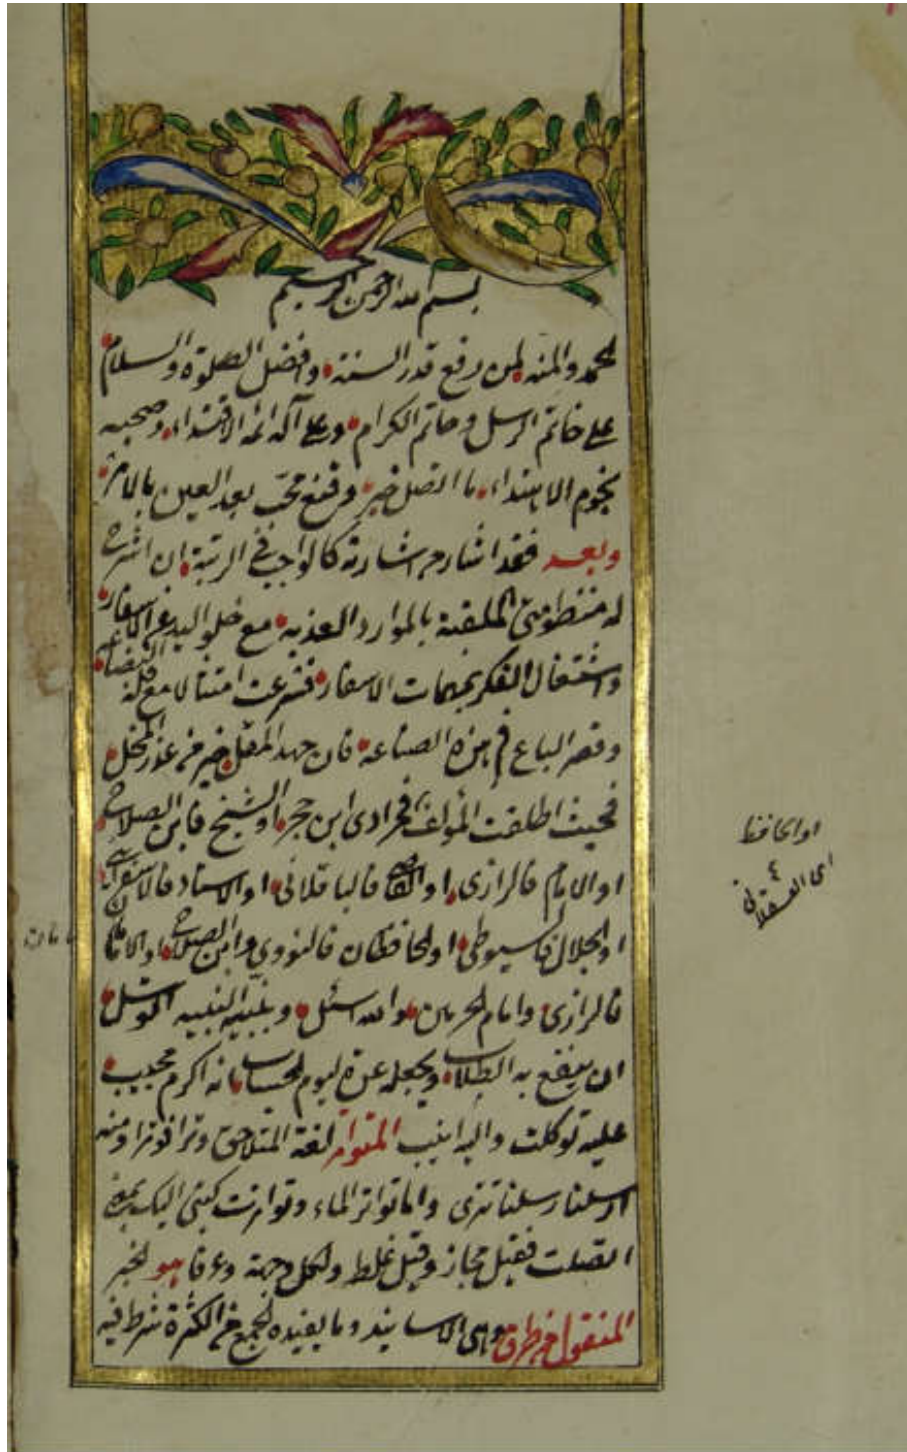 بسم الله الرحمن الرحيم
الحمد والمنه لمن رفع قدر السنة وافضل الصلوة والسلام
على خاتم الرسل وخاتم الكرام وعلى آله ائمة الاقتداء وصحبه
نجوم الاهتداء ما اتصل خبر وقنع محب بعد العين بالاثر
وبعد فقد اشار من اشارته كالواجب في الرتبة ان اشرح
له منظومتي الملقبة بالموارد العذبه مع خلو اليد عن الاسفار
واشتغال الفكر بمهمات الاسفار فشرعت امتثالا مع قلة البضاعه
وقصر الباع في هذه الصناعه فان جهد المقل خير من عذر المخل
فحيث اطلقت المؤلف فمرادى ابن حجر او الشيخ فابن الصلاح
او الامام فالرازى او القاضى فالباقلانى او الاستاد فالاسفرائنى
او الجلال فالسيوطى او الحافظان فالنووي وابن الصلاح او الامامان
فالرازى وامام الحرمين والله اسئل وبنبيه النبيه اتوسل
ان ينفع به الطلاب ويجعله عدة ليوم الحساب انه اكرم مجيب
عليه توكلت واليه انيب المتواتر لغة المتلاحق وترا فوترا ومنه
ارسلنا رسلنا تترى واما تواتر الماء وتواترت كتبى اليك بمعنى
اتصلت فقيل مجاز وقيل غلط ولكل وجهة وعرفا هو الخبر
المنقول من طرق وهى الاسانيد وما يفيده الجمع من الكثرة شرط فيه
او الحافظ
اى العسقلانى